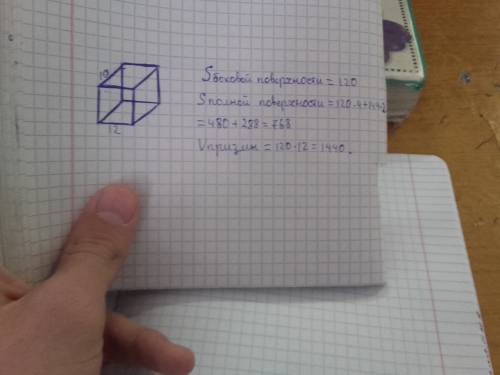 10
12
Sбоковой поверхности = 120
Sполной поверхности = 120·4+144·2
= 480 + 288 = 768
Vпризмы = 120·12 = 1440.